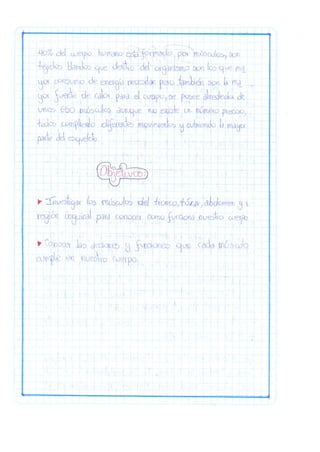 40% del cuerpo humano está formado, por músculos, son
tejidos blandos que dentro del organismo son los que ma
yor consumo de energía necesitan pero también son la ma
yor fuente de calor para el cuerpo, se posee alrededor de
unos 650 músculos aunque no existe un número preciso,
todos cumpliendo diferentes movimientos y cubriendo la mayor
parte del esqueleto.
Objetivos:
Investigar los músculos del tronco, tórax, abdomen y
región inguinal para conocer como funciona nuestro cuerpo
Conocer las acciones y funciones que cada músculo
cumple en nuestro cuerpo.